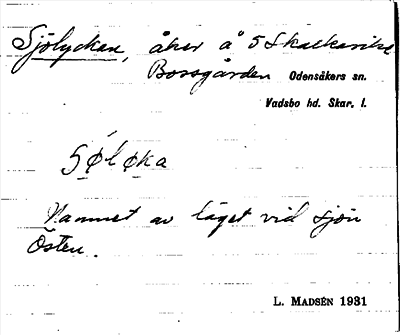 Sjölyckan, åker å 5 Skattegård
Bossgården Odensåkers sn.
Vadsbo hd. Skar. l.
sø̀lø̀ka
Namnet av läget vid sjön
Östen.
L. MADSÉN 1931